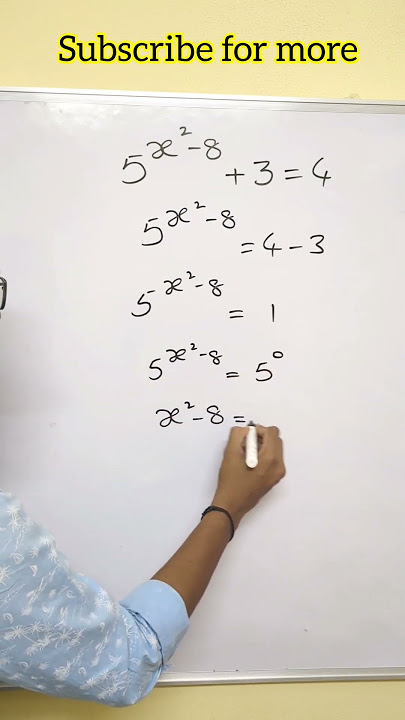 Subscribe for more
5^{x²-8} + 3 = 4
5^{x²-8} = 4 - 3
5^{x²-8} = 1
5^{x²-8} = 5⁰
x² - 8 =